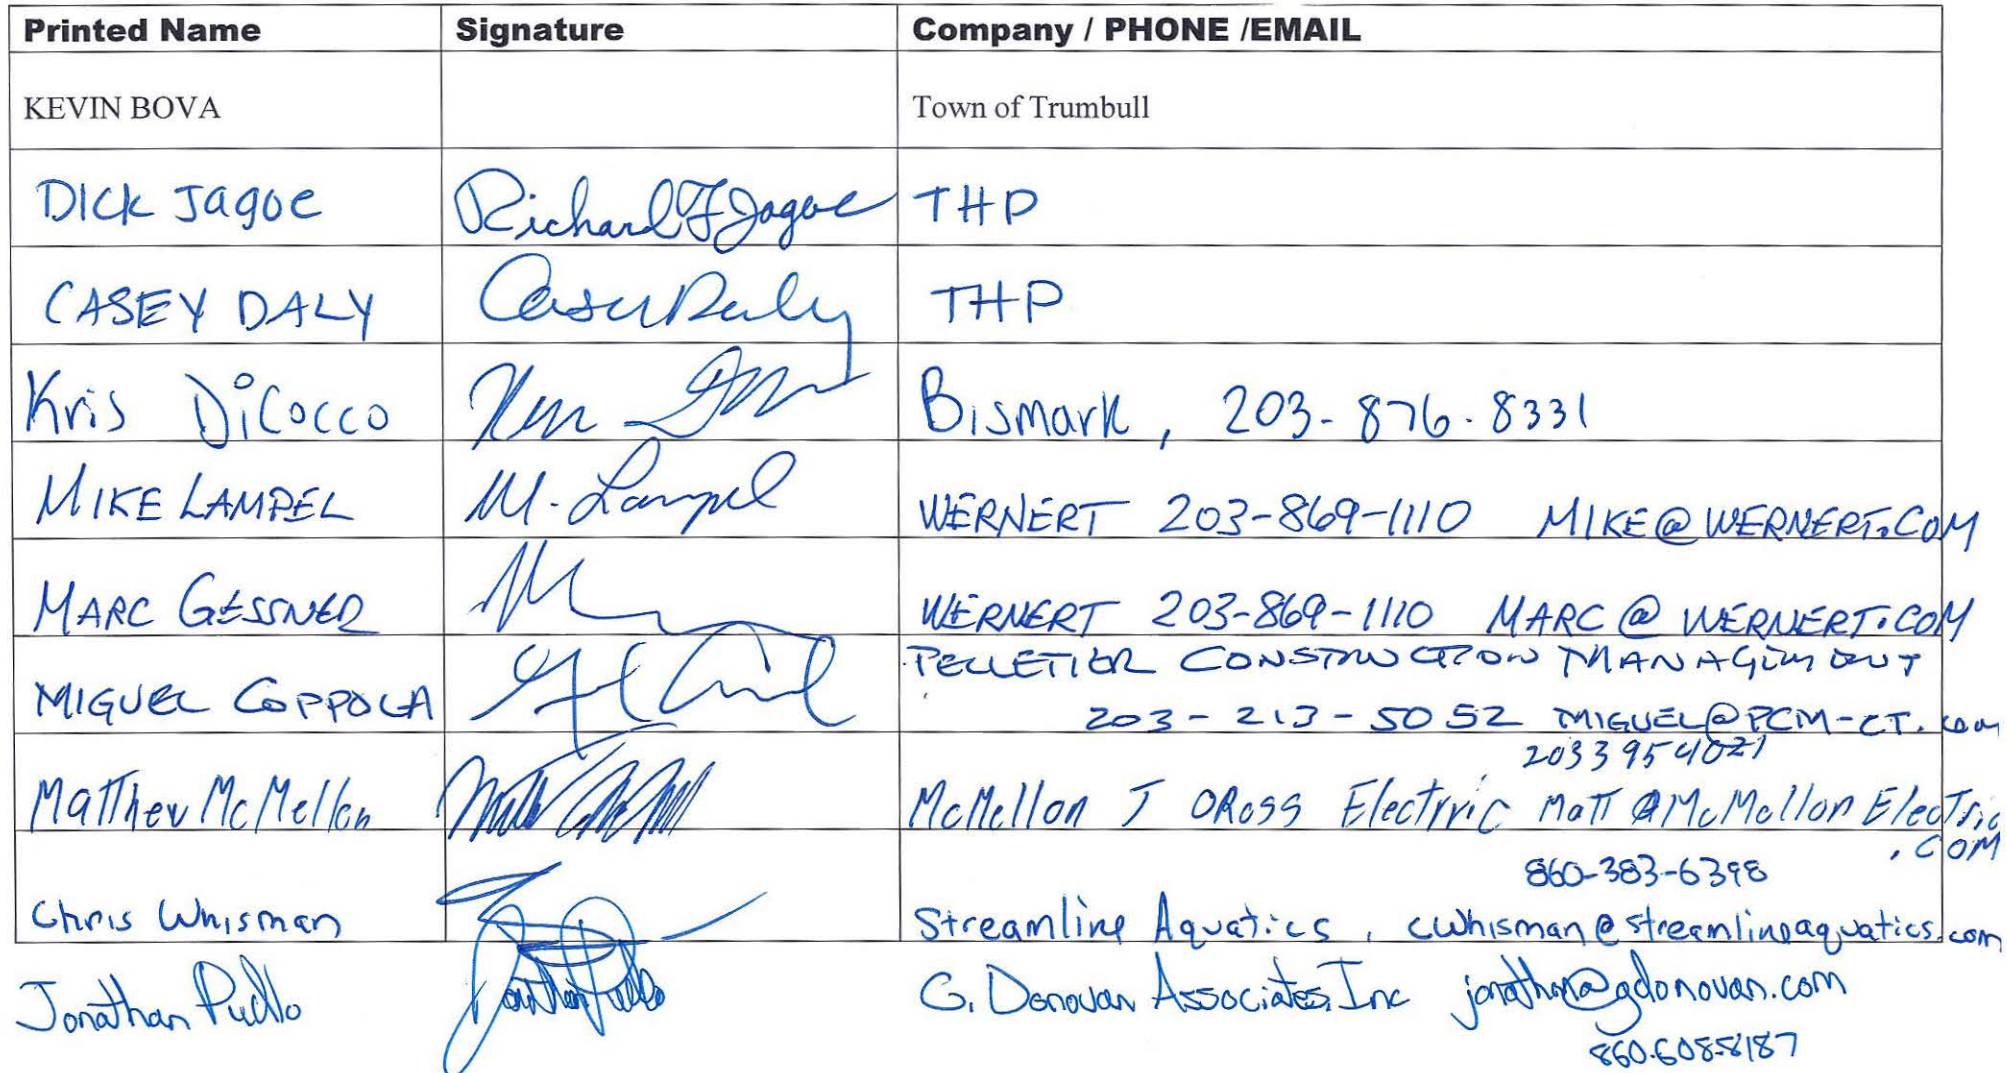 Printed Name Signature Company / PHONE /EMAIL
KEVIN BOVA Town of Trumbull
DICK Jagoe Richard F Jagoe THP
CASEY DALY Casey Daly THP
Kris DiCocco Bismark, 203-876-8331
MIKE LAMPEL M. Lampel WERNERT 203-869-1110 MIKE@WERNERT.COM
MARC GESSNER WERNERT 203-869-1110 MARC@WERNERT.COM
PELLETIER CONSTRUCTION MANAGEMENT
MIGUEL COPPOLA 203-213-5052 MIGUEL@PCM-CT.com
2033954021
Matthew McMellon McMellon Electric Matt@McMellonElectric
.COM
860-383-6398
Chris Whisman Streamline Aquatics, cwhisman@streamlineaquatics.com
Jonathan Pullo Jonathan Pullo G. Donovan Associates, Inc jonathan@gdonovan.com
860.608.8187